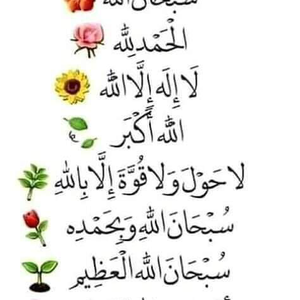 سُبْحَانَ اللّٰه
الْحَمْدُلِلّٰه
لَا إِلَهَ إِلَّا اللّٰه
اللّٰهُ أَكْبَر
لَا حَوْلَ وَلَا قُوَّةَ إِلَّا بِاللّٰهِ
سُبْحَانَ اللّٰهِ وَبِحَمْدِه
سُبْحَانَ اللّٰهِ الْعَظِيم